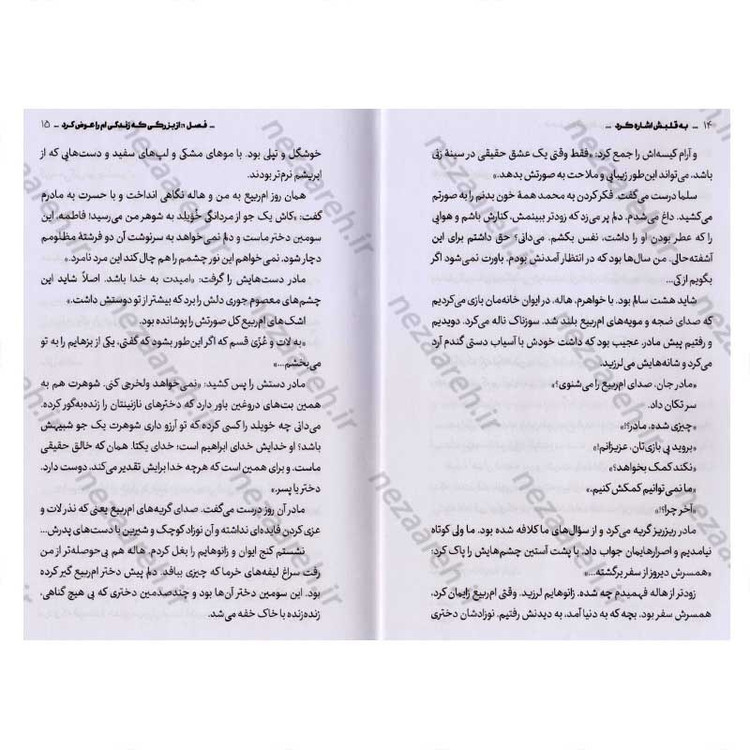 ۱۴ ـ به قلبش اشاره کرد ـ
و آرام کیسه‌اش را جمع کرد: «فقط وقتی یک عشق حقیقی در سینهٔ زنی
باشد، می‌تواند این‌طور زیبایی و ملاحت به صورتش بدهد.»
سلما درست می‌گفت. فکر کردن به محمد همهٔ خون بدنم را به صورتم
می‌کشید. داغ می‌شدم. دلم پر می‌زد که زودتر ببینمش، کنارش باشم و هوایی
را که عطر بودن او را داشت، نفس بکشم. می‌دانی؟ حق داشتم برای این
آشفته‌حالی. من سال‌ها بود که در انتظار آمدنش بودم. باورت نمی‌شود اگر
بگویم از کی...
شاید هشت سالم بود. با خواهرم، هاله، در ایوان خانه‌مان بازی می‌کردیم
که صدای ضجه و مویه‌های ام‌ربیع بلند شد. سوزناک ناله می‌کرد. دویدیم
و رفتیم پیش مادر. عجیب بود که داشت خودش با آسیاب دستی گندم آرد
می‌کرد و شانه‌هایش می‌لرزید.
«مادر جان، صدای ام‌ربیع را می‌شنوی؟»
سر تکان داد.
«چیزی شده، مادر؟!»
«بروید پی بازی‌تان، عزیزانم!»
«نکند کمک بخواهد؟»
«ما نمی‌توانیم کمکش کنیم.»
«آخر چرا؟!»
مادر ریزریز گریه می‌کرد و از سؤال‌های ما کلافه شده بود. ما ولی کوتاه
نیامدیم و اصرارهایمان جواب داد. با پشت آستین چشم‌هایش را پاک کرد:
«همسرش دیروز از سفر برگشته...»
زودتر از هاله فهمیدم چه شده. زانوهایم لرزید. وقتی ام‌ربیع زایمان کرد،
همسرش سفر بود. بچه که به دنیا آمد، به دیدنش رفتیم. نوزادشان دختری
ـ فصل ۱: از بزرگی که زندگی ام را عوض کرد ـ ۱۵
خوشگل و تپلی بود. با موهای مشکی و لپ‌های سفید و دست‌هایی که از
ابریشم نرم‌تر بودند.
همان روز ام‌ربیع به من و هاله نگاهی انداخت و با حسرت به مادرم
گفت: «کاش یک جو از مردانگی خُوَیلد به شوهر من می‌رسید؛ فاطمه، این
سومین دختر ماست و دلم نمی‌خواهد به سرنوشت آن دو فرشتهٔ مظلومم
دچار شود. نمی‌خواهم این نور چشمم را هم چال کند این مرد نامرد.»
مادر دست‌هایش را گرفت: «امیدت به خدا باشد. اصلاً شاید این
چشم‌های معصوم جوری دلش را برد که بیشتر از تو دوستش داشت.»
اشک‌های ام‌ربیع کل صورتش را پوشانده بود.
«به لات و عُزّی قسم که اگر این‌طور بشود که گفتی، یکی از بزهایم را به تو
می‌بخشم...»
مادر دستش را پس کشید: «نمی‌خواهد ولخرجی کنی. شوهرت هم به
همین بت‌های دروغین باور دارد که دخترهای نازنینتان را زنده‌به‌گور کرده.
می‌دانی چه خویلد را کسی کرده که تو آرزو داری شوهرت یک جو شبیهش
باشد؟ او خدایش خدای ابراهیم است؛ خدای یکتا. همان که خالق حقیقی
ماست. و برای همین است که هرچه خدا برایش تقدیر می‌کند، دوست دارد.
دختر یا پسر.»
مادر آن روز درست می‌گفت. صدای گریه‌های ام‌ربیع یعنی که نذر لات و
عزی کردن فایده‌ای نداشته و آن نوزاد کوچک و شیرین با دست‌های پدرش...
نشستم کنج ایوان و زانوهایم را بغل کردم. هاله هم بی‌حوصله‌تر از من
رفت سراغ لیفه‌های خرما که چیزی ببافد. دلم پیش دختر ام‌ربیع گیر کرده
بود. این سومین دختر آن‌ها بود و چندصدمین دختری که بی هیچ گناهی،
زنده‌زنده با خاک خفه می‌شد.
nezaareh.ir
nezaareh.ir
nezaareh.ir
nezaareh.ir
nezaareh.ir
nezaareh.ir